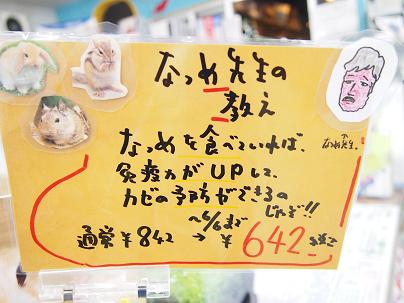 なつめ先生の
教え
なつめ先生
なつめを食べていれば、
免疫力がUPして、
カビの予防ができるの
じゃぞ!!
〜6/6まで
通常¥842→¥642